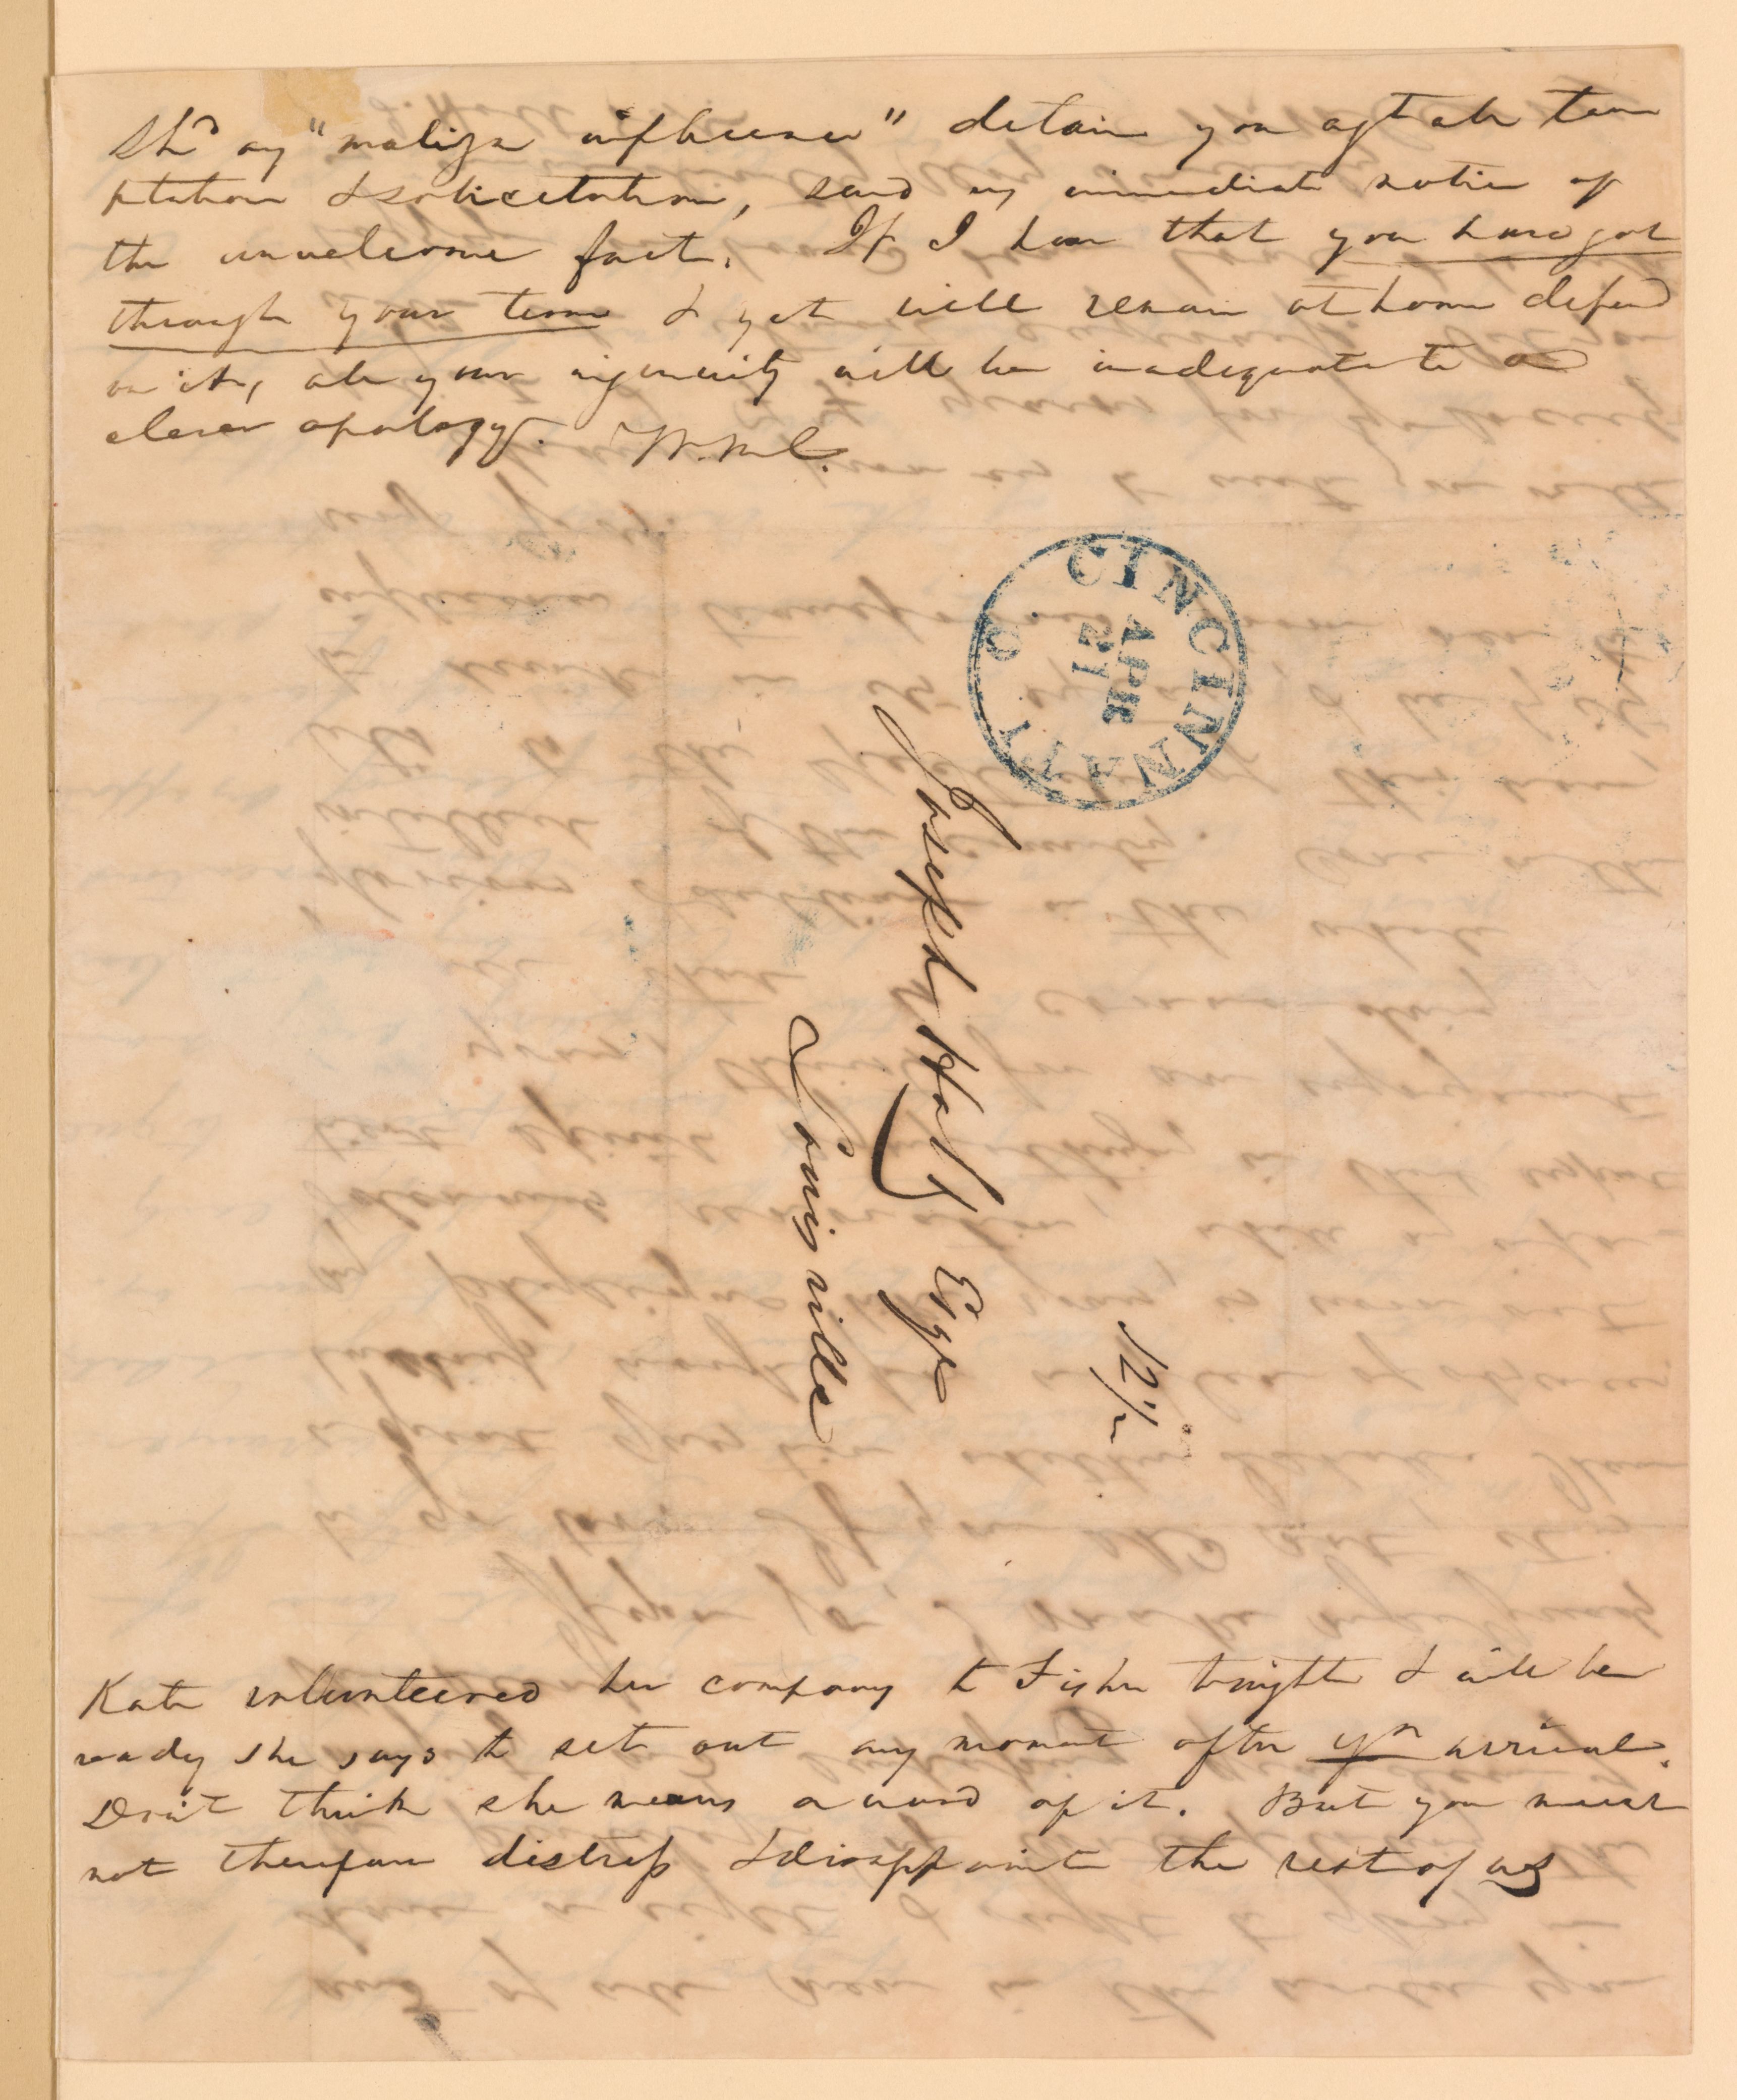 Shd any "malign influence" detain you agt all tem
ptation & solicitation, send us immediate notice of
the unwelcome fact. If I hear that you have got
through your term & yet will remain at home depend
on it, all your ingenuity will be inadequate to a
clever apology. W.M.C.
CINCINNATI O.
APR
21
Joseph Holt Esqr
Louisville
12½
Kate volunteered her company to Fisher tonight & will be
ready she says to set out any moment after yr arrival.
Don't think she means a word of it. But you must
not therefore distress & disappoint the rest of us